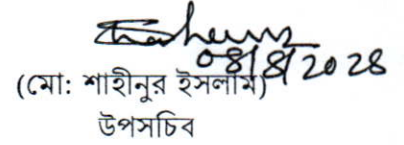 08/8/2028
(মো: শাহীনুর ইসলাম)
উপসচিব